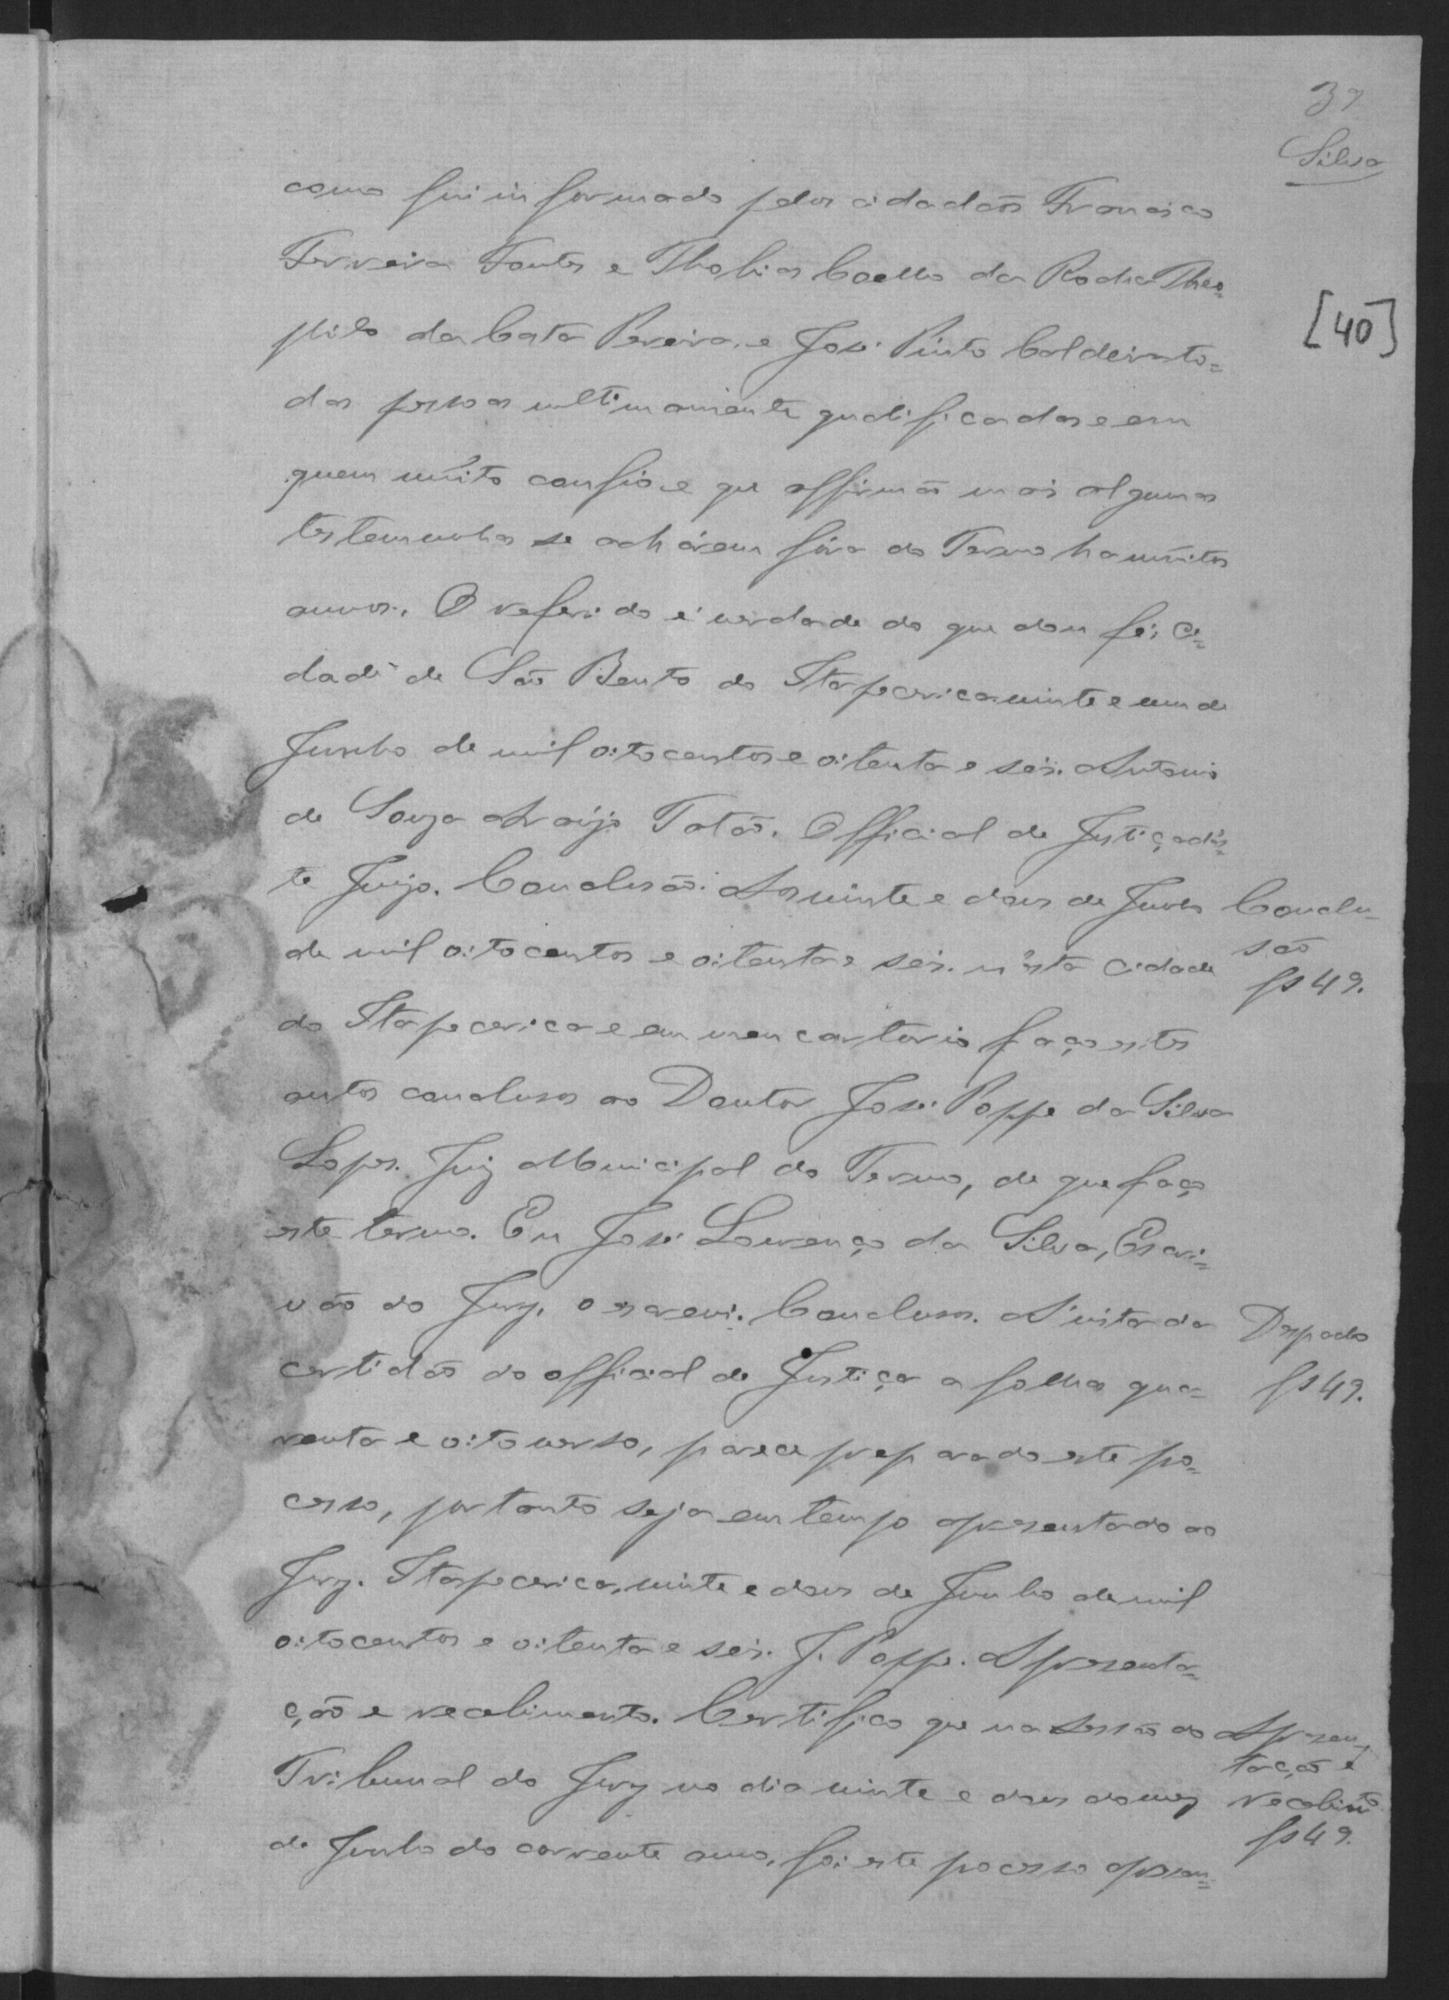 37
Silva
[40]
como fui informado pelos cidadãos Francisco
Ferreira Fontes e Thobias Coelho da Rocha Theo=
philo da Cata Pereira, e José Pinto Caldeira to=
das pessoas ultimamente qualificadas e em
quem muito confio e que affirmão mais algumas
testemunhas se achárem fóra do Termo ha muitos
annos. O referido é verdade do que dou fé; Ci=
dade de São Bento do Itapecerica vinte e um de
Junho de mil oitocentos e oitenta e seis. Antonio
de Souza Araújo Totão. Official de Justiça dés=
te Juizo. Conclusão. Aos vinte e dous de Junho
Conclu=
são
fs 49.
de mil oitocentos e oitenta e seis. n'ésta Cidade
do Itapecerica e em meu cartorio faço estes
autos conclusos ao Doutor José Poppe da Silva
Lopes. Juiz Municipal do Termo, de que faço
este termo. Eu José Lourenço da Silva, Escri=
vão do Jury, o escrevi. Conclusos. A' vista da
Despacho
fs 49.
certidão do official de Justiça a folhas qua=
renta e oito verso, parece preparado este po=
cesso, portanto seja em tempo apresentado ao
Jury. Itapecerica, vinte e dous de Junho de mil
oitocentos e oitenta e seis. J. Poppe. Apresenta=
ção e recebimento. Certifico que na sessão do
Apresen=
tação e
recebimto
fs 49.
Tribunal do Jury no dia vinte e dous do mez
de Junho do corrente anno, foi este pocesso apresen=